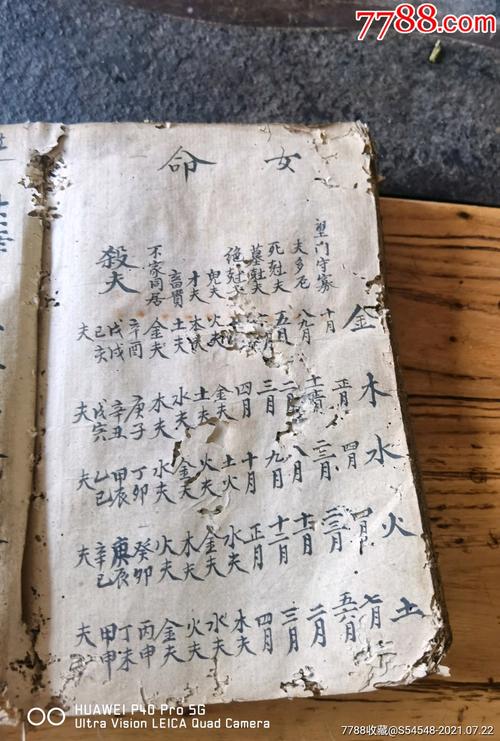 女命
金 木 水 火 土
望门守寡 十月 正月 四月 四月 七月
夫多厄 八九月 二三月 二三月 五六月
死尅夫 五月 二月 八月 十月 二月
墓尅夫 三月 九月 十二月 三月
绝尅夫 四月 十月 正月 四月
鬼夫 火夫 金夫 土火 水夫 木夫
才夫 木夫 土夫 火夫 金夫 水夫
土夫 水夫 金夫 木夫 火夫
不家同居 金夫 木夫 水夫 火夫 金夫
辛酉 庚子 丁卯 癸卯 丙申
殺夫 戊戌 辛丑 甲辰 庚辰 丁未
己亥 戊寅 乙巳 辛巳 甲申
夫 夫 夫 夫 夫
7788.com
HUAWEI P40 Pro 5G
Ultra Vision LEICA Quad Camera
7788收藏@S54548-2021.07.22